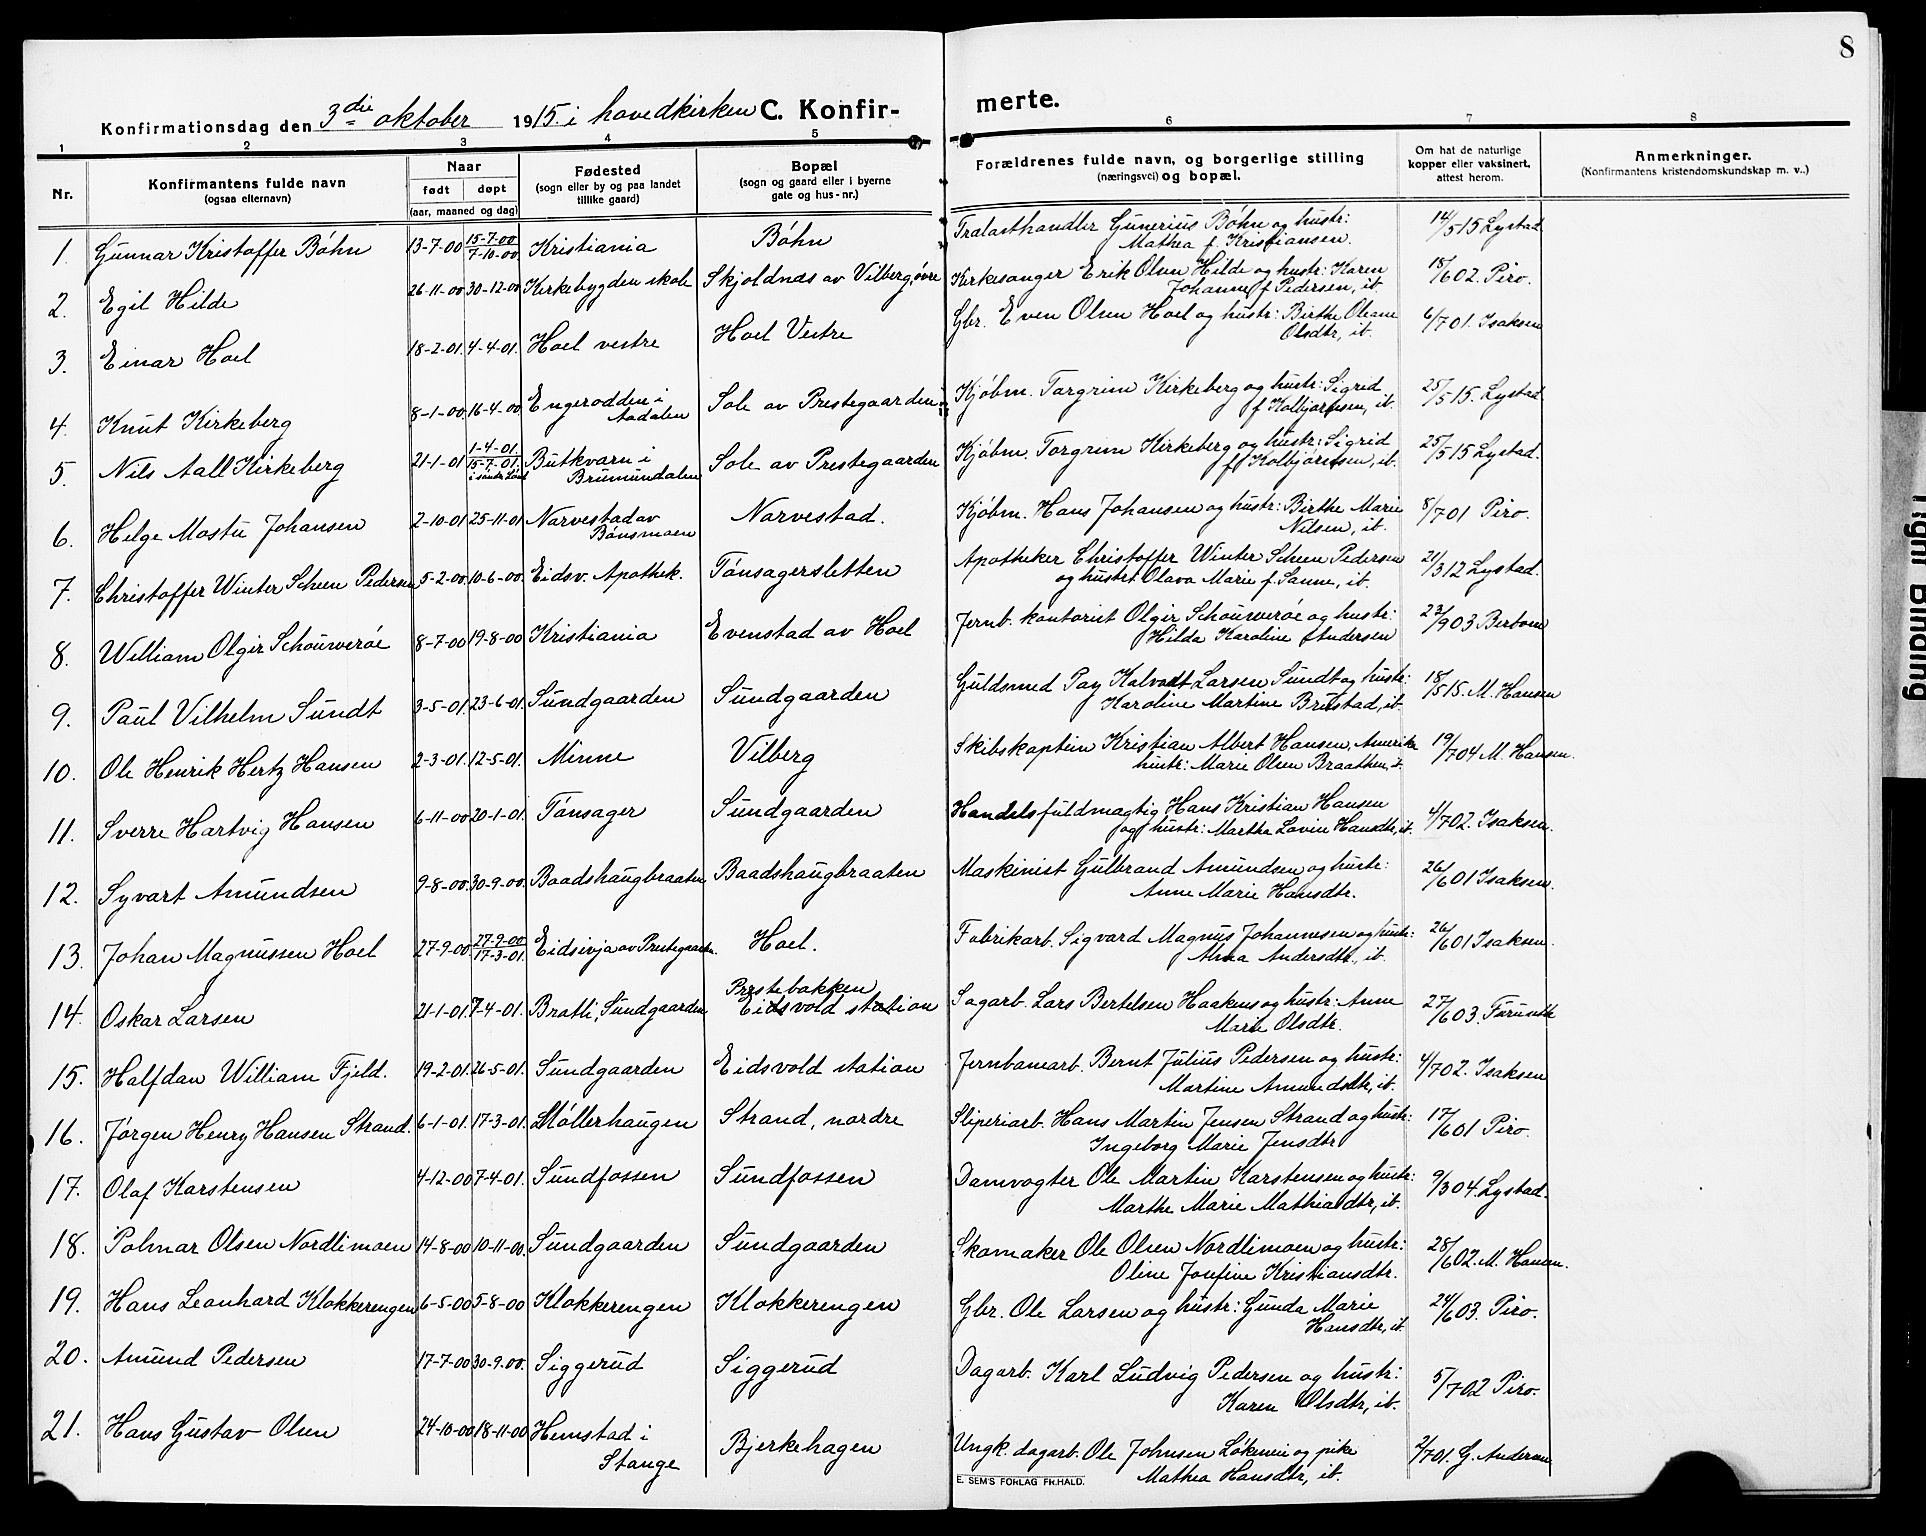 8
Konfirmationsdag den 3die oktober 1915. i hovedkirken C. Konfir-
merte.
1 2 3 4 5 6 7 8
Nr.
Konfirmantens fulde navn
(ogsaa elternavn)
Naar
født døpt
(aar, maaned og dag)
Fødested
(sogn eller by og paa landet
tillike gaard)
Bopæl
(sogn og gaard eller i byerne
gate og hus-nr.)
Forældrenes fulde navn, og borgerlige stilling
(næringsvei) og bopæl.
Om hat de naturlige
kopper eller vaksinert,
attest herom.
Anmerkninger.
(Konfirmantens kristendomskundskap m. v..)
1. Gunnar Kristoffer Bøhn 13-7-00 15-7-00 7-10-00 Kristiania Bøhn Trælasthandler Gunerius Bøhn og hustr: 14/5 15 Lystad
Mathea f. Kristiansen.
2. Egil Hilde 26-11-00 30-12-00 Kirkebygden skole Skjoldnæs av Vilberg, øvre Kirkesanger Erik Olsen Hilde og hustr: Karen 18/6 02. Piro.
Johanne f Pedersen, ib.
3. Einar Hoel 18-2-01. 4-4-01. Hoel vestre Hoel Vestre Gbr. Even Olsen Hoel og hustr: Birthe Oleane 6/7 01. Isaksen
Olsdtr, ib.
4. Knut Kirkeberg 8-1-00 16-4-00 Engerodden i Sole av Prestegaarden Kjøbm. Torgrim Kirkeberg og hustr: Sigrid 25/5 15. Lystad
Aadalen f Kolbjørnsen, ib.
5. Nils Aall Kirkeberg 21-1-01 1-4-01. 15-7-01. Butkvern i Sole av Prestegaarden Kjøbm. Torgrim Kirkeberg og hustr: Sigrid 25/5 15 Lystad.
i søndre Land Brumundalen f Kolbjørnsen, ib.
6. Helge Mostu Johansen 2-10-01 25-11-01 Narvestad av Narvestad. Kjøbm. Hans Johansen og hustr: Birthe Marie 8/7 01 Piro.
Bønsmoen Nilsen, ib.
7. Christoffer Winter Scheen Pedersen 5-2-00 10-6-00. Eidsv. Apothek. Tønsagersletten Apotheker Christoffer Winter Scheen Pedersen 21/3 12 Lystad.
og hustr. Olava Marie f. Sanne, ib.
8. William Olgir Schouwerøe 8-7-00 19-8-00 Kristiania Evenstad av Hoel Jernb. kontorist Olgir Schouwerøe og hustr: 23/9 03
Hilda Karoline f Andersen
9. Paul Vilhelm Sundt 3-5-01. 23-6-01. Sundgaarden Sundgaarden Guldsmed Pay Kalvodt Larsen Sundt og hustr: 18/5 15. M. Hansen
Karoline Martine Brustad, ib.
10. Ole Henrik Hertz Hansen 2-3-01. 12-5-01. Minne Vilberg Skibskaptein Kristian Albert Hansen, Amerika 19/7 04 M. Hansen.
hustr: Marie Olsen Braathen, ib.
11. Sverre Hartvig Hansen 6-11-00 20-1-01. Tønsager Sundgaarden Handelsfuldmægtig Hans Kristian Hansen 4/7 02. Isaksen.
og hustr: Martha Lovise Hansdtr, ib.
12. Syvart Amundsen 9-8-00 30-9-00. Baadshaugbraaten Baadshaugbraaten Maskinist Gulbrand Amundsen og hustr: 26/6 01 Isaksen.
Anne Marie Hansdtr.
13. Johan Magnussen Hoel 27-9-00 27-9-00 17-3-01. Eidsivja av Prestegaarden. Hoel. Fabrikarb. Sigvard Magnus Johannesen og hustr: 26/6 01 Isaksen.
Alma Andersdtr, ib.
14. Oskar Larsen 21-1-01. 7-4-01. Bratli, Sundgaarden Prestebakken Eidsvold station Sagarb. Lars Bertelsen Haakens og hustr: Anne 27/6 03. Furuseth
Marie Olsdtr.
15. Halfdan William Fjeld. 19-2-01. 26-5-01. Sundgaarden Eidsvold station Jernbanearb. Bernt Julius Pedersen og hustr: 4/7 02. Isaksen
Martine Amundsdtr, ib.
16. Jørgen Henry Hansen Strand. 6-1-01. 17-3-01. Møllerhaugen Strand, nordre Sliperiarb. Hans Martin Jensen Strand og hustr: 17/6 01 Piro.
Ingeborg Marie Jensdtr
17. Olaf Karstensen 4-12-00 7-4-01. Sundfossen Sundfossen Damvogter Ole Martin Karstensen og hustr: 9/3 04. Lystad.
Marthe Marie Mathiasdtr, ib.
18. Palmar Olsen Nordlimoen 14-8-00 10-11-00. Sundgaarden Sundgaarden Skomaker Ole Olsen Nordlimoen og hustr: 28/6 02. M. Hansen.
Oline Josefine Kristiansdtr.
19. Hans Leonhard Klokkerengen 6-5-00 5-8-00 Klokkerengen Klokkerengen Gbr. Ole Larsen og hustr: Gunda Marie 24/6 03. Piro.
Hansdtr, ib.
20. Amund Pedersen 17-7-00 30-9-00. Siggerud Siggerud Dagarb. Karl Ludvig Pedersen og hustr: 5/7 02 Piro.
Karen Olsdtr, ib.
21. Hans Gustav Olsen 24-10-00 18-11-00 Hemstad i Bjerkehagen Ungk. dagarb. Ole Johnsen Løkenei og pike 2/7 01. G. Andersen
Stange Mathea Hansdtr, ib.
E. SEM'S FORLAG FR.HALD.
Tight Binding